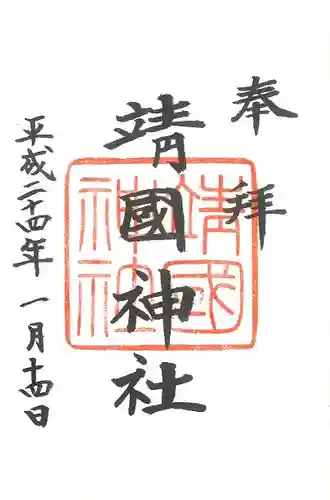 奉拝
靖國神社
靖國神社
平成二十四年 一月十四日